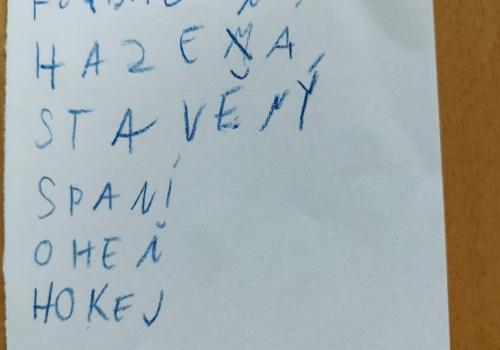 HAZENÁ
STAVĚNÝ
SPANÍ
OHEŇ
HOKEJ